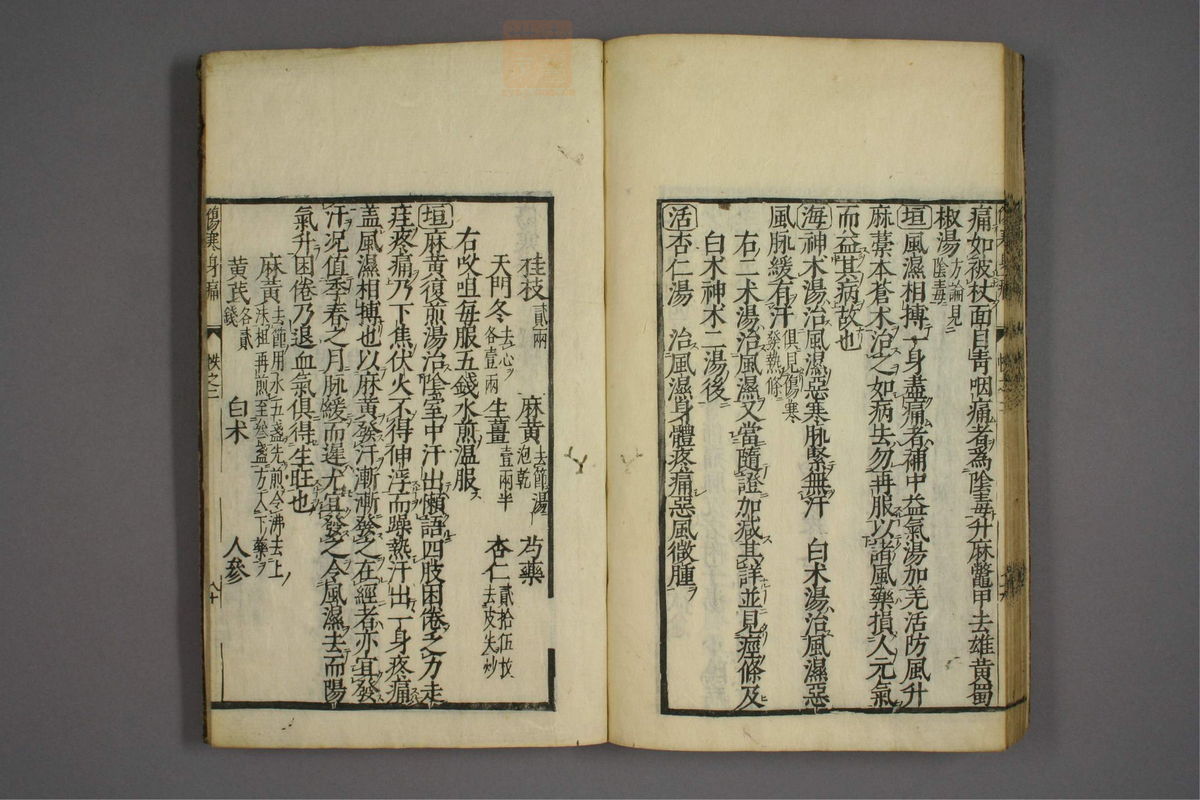 痛如被杖面目靑咽痛者爲陰毒升麻鼈甲去雄黃蜀
椒湯方論見陰毒
垣風濕相搏一身盡痛者補中益氣湯加羌活防風升
麻藁本蒼术治之如病去勿再服以諸風藥損人元氣
而益其病故也
海神术湯治風濕惡寒脉緊無汗 白术湯治風濕惡
風脉緩有汗俱見傷寒發熱條
右二术湯治風濕又當隨證加減其詳並見痙條及
白术神术二湯後
活杏仁湯 治風濕身體疼痛惡風微腫
桂枝貳兩 麻黃去節湯泡乾 芍藥
天門冬去心各壹兩 生薑壹兩半 杏仁貳拾伍枚去皮尖炒
右㕮咀每服五錢水煎温服
垣麻黃復煎湯治陰室中汗出懶語四肢困倦乏力走
疰疼痛乃下焦伏火不得伸浮而躁熱汗出一身疼痛
盖風濕相搏也以麻黃發汗漸漸發之在經者亦宜發
汗况值季春之月脉緩而遲尤宜發之令風濕去而陽
氣升困倦乃退血氣俱得生旺也
麻黃去節用水五盞先煎令沸去上沫柤再煎至參盞方入下藥
黃芪各貳錢 白术 人參
傷寒身痛 帙之三 八十